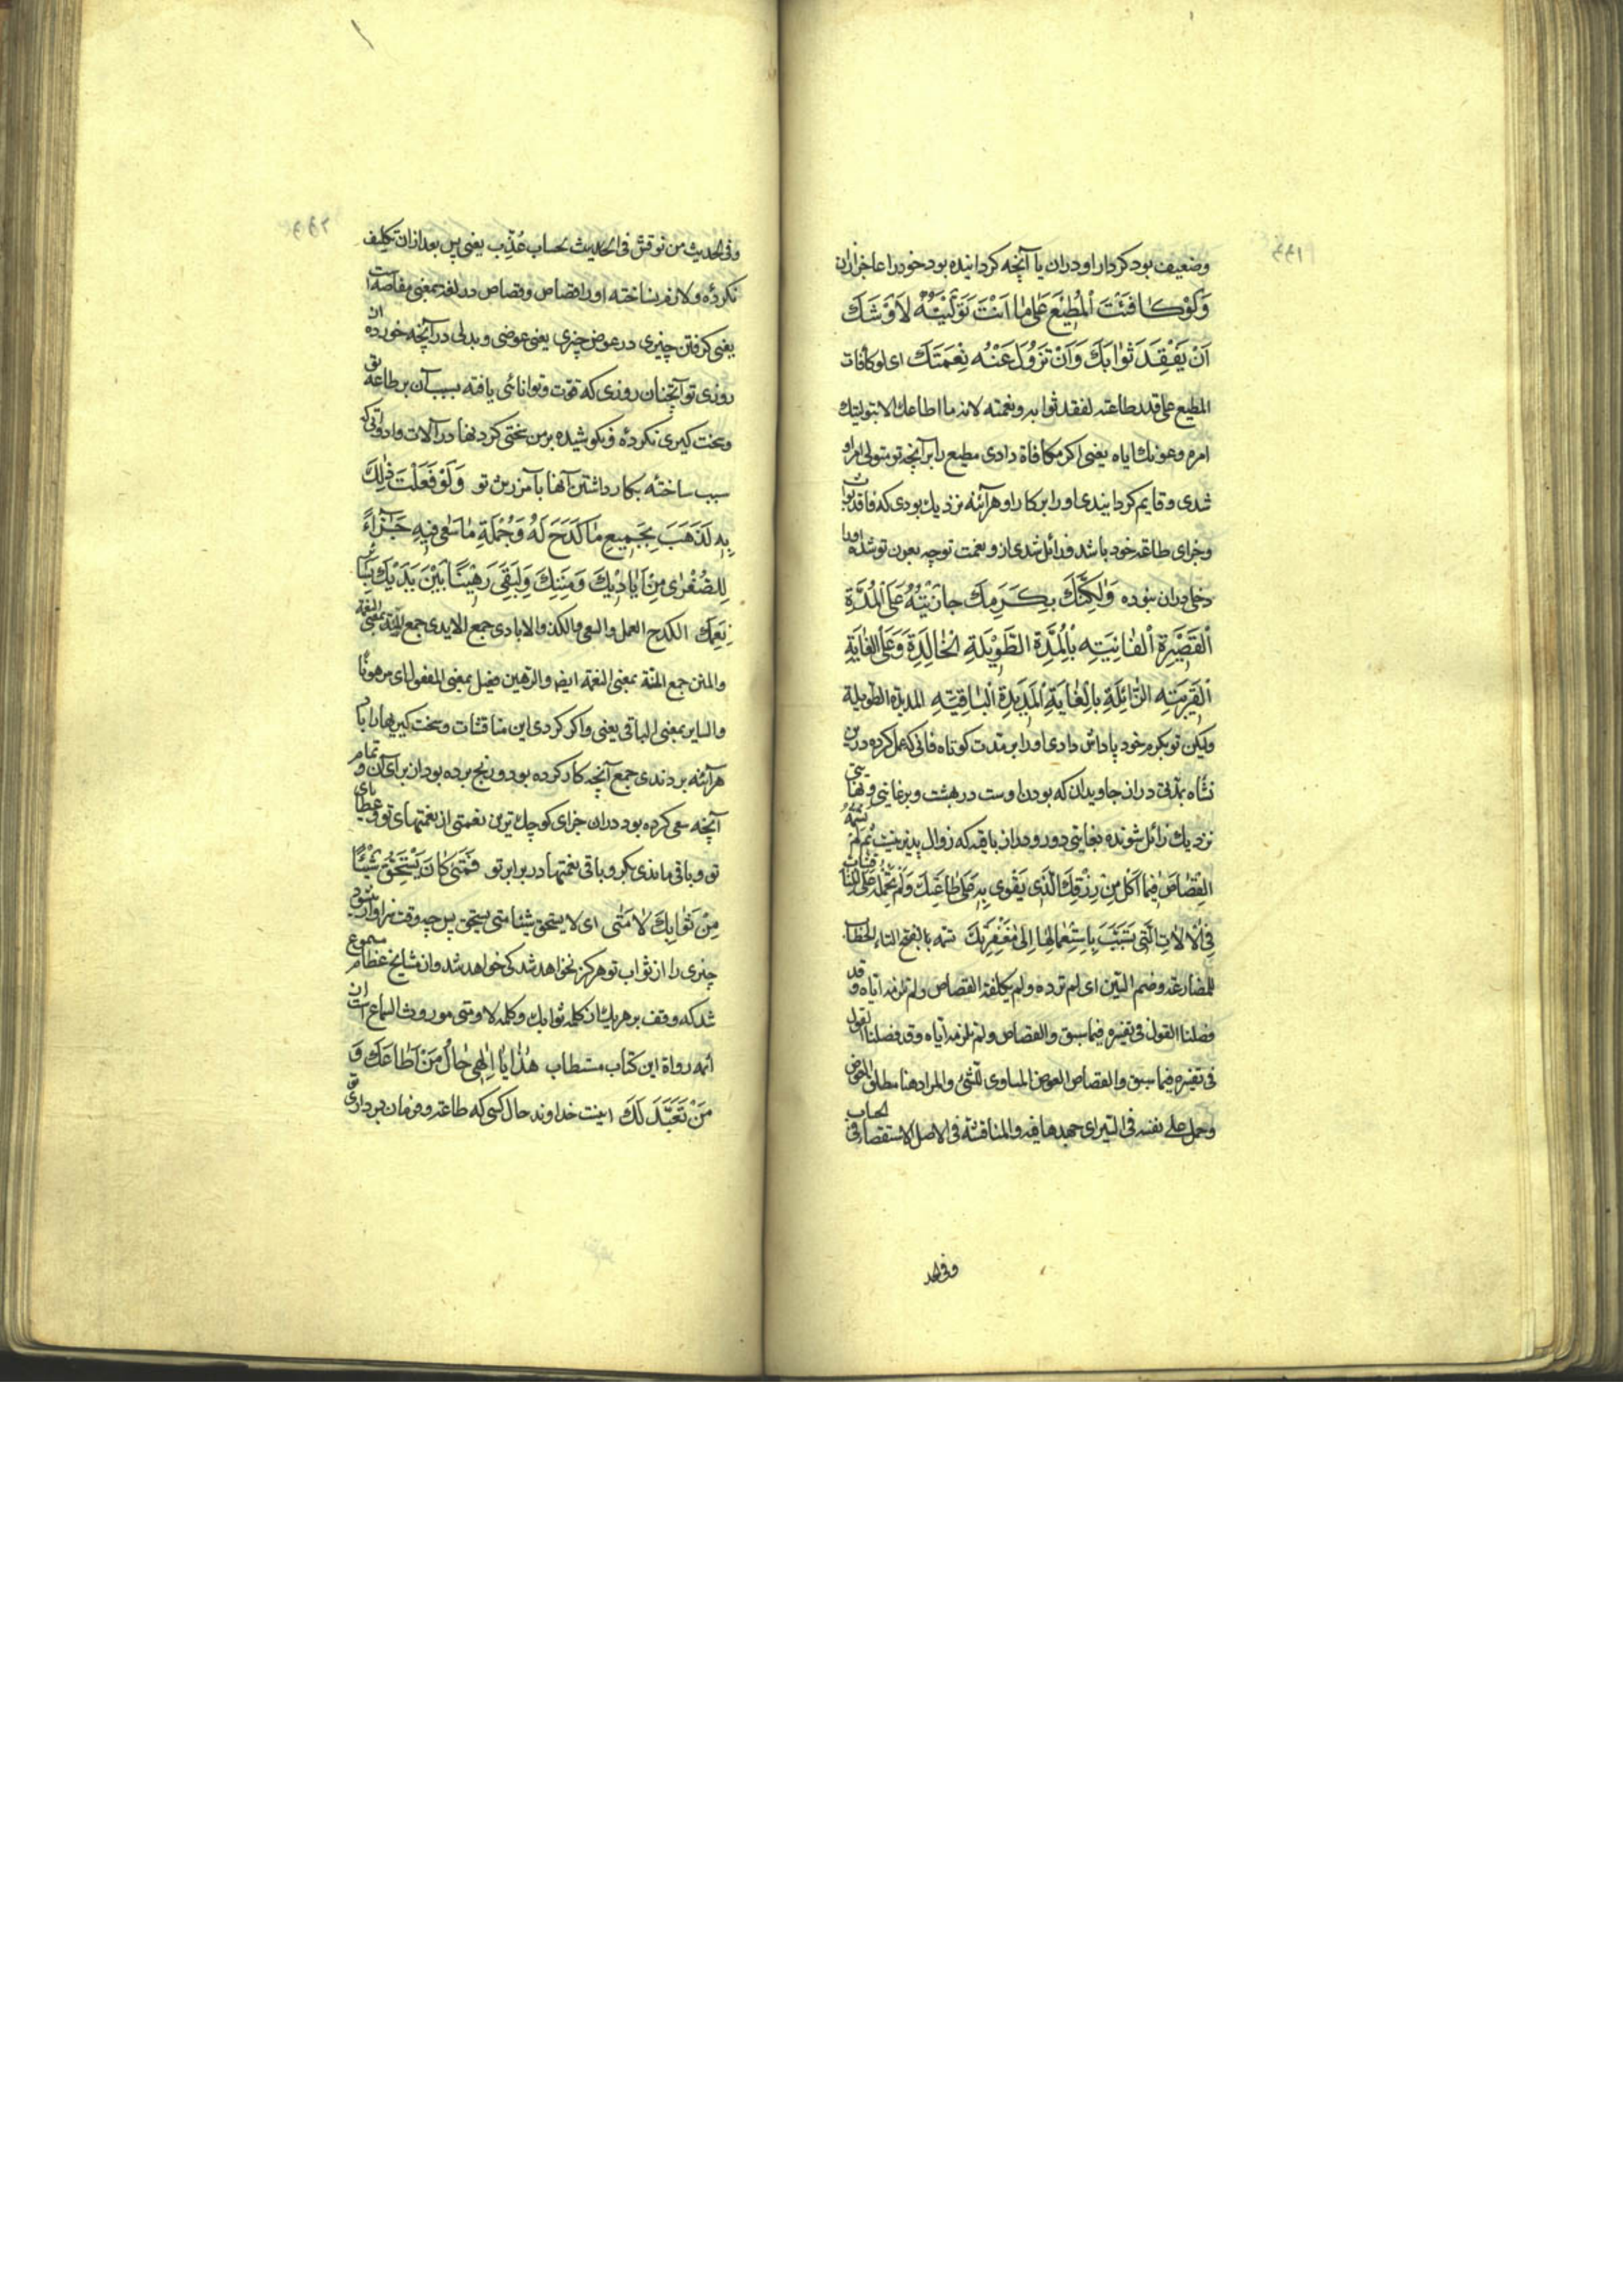 وضعیف بود کردار او دران یا آنچه کردانیده بود خود را عاجز ازان
وَلَوْ كَافَئْتَ الْمُطِيْعَ عَلٰى مٰا اَنْتَ تَوَلَّيْتَهُ لَاَوْشَكَ
اَنْ يَفْقِدَ ثَوٰابَكَ وَاَنْ تَزُوْلَ عَنْهُ نِعْمَتَكَ ای لو کافات
المطیع علی قدر طاعته لفقد ثوابه ونعمته لانه ما اطاعك الا بتولیتك
امره وعونك ایاه یعنی اکر مکافاة دادی مطیع را بر آنچه تو متولی امر او
شدی وقایم کردانیدی او را بر کار او هر آئنه نزدیك بودی که فاقد ثواب
وجزای طاعة خود باشد وزائل شدی از او نعمت تو چه بعون تو شده او را
دخلی دران نبوده وَلٰكِنَّكَ بِكَرَمِكَ جٰازَيْتَهُ عَلَى الْمُدَّةِ
الْقَصِيْرَةِ الْفٰانِيَةِ بِالْمُدَّةِ الطَّوِيْلَةِ الْخٰالِدَةِ وَعَلَى الْغٰايَةِ
الْقَرِيْبَةِ الزّٰائِلَةِ بِالْغٰايَةِ الْمَدِيْدَةِ الْبٰاقِيَةِ المدیدة الطویلة
ولیکن تو بکرم خود پاداش دادی او را بر مدت کوتاه فانی که عمل کرده درین
نشاه بمدتی دراز جاویدان که بودن اوست در بهشت وبر غایتی ونهایتی
نزدیك زائل شونده بغایتی دور ودراز باقیه که زوال پذیر نیست ثُمَّ لَمْ تَسُمْهُ
الْقِصٰاصَ فِيمٰا اَكَلَ مِنْ رِزْقِكَ الَّذِى يَقْوٰى بِهِ عَلٰى طٰاعَتِكَ وَلَمْ تَحْمِلْهُ عَلَى الْمُنٰاقَشٰاتِ
فِى الْاٰلاٰتِ الَّتِى تَسَبَّبَ بِاسْتِعْمٰالِهٰا اِلٰى مَغْفِرَتِكَ تسمه بالفتح التاء للخطاب
للمضارعة وضم السین ای لم ترده ولم یکلفه القصاص ولم تلزمه ایاه وقد
فصلنا القول فی تفسیره فیما سبق والقصاص ولم تلزمه ایاه وقد فصلنا القول
فی تفسیره فیما سبق والقصاص العوض المساوی للشیء والمراد هنا مطلق العوض
وحمل علی نفسه فی السیر ای جهدها فیه والمناقشة فی الاصل الاستقصاء فی الحساب
وفی الحد
وفی الحدیث من نوقش فی الحدیث لحساب عُذِّب یعنی پس بعد ازان تکلیف
نکرده ولازم نساخته او را قصاص وقصاص در لغة بمعنی مقاصه است
یعنی کرفتن چیزی در عوض چیزی یعنی عوضی وبدلی در آنچه خورده از
روزی تو آنچنان روزی که قوت وتوانائی یافته بسبب آن بر طاعة تو
وسخت کیری نکرده ونکوشیده بر من سختی کردنها در آلات وادواتی که
سبب ساخته بکار داشتن آنها بآمرزش تو وَلَوْ فَعَلْتَ ذٰلِكَ
بِهِ لَذَهَبَ بِجَمِيعِ مٰا كَدَحَ لَهُ وَجُمْلَةِ مٰا سَعٰى فِيهِ جَزٰاءً
لِلصُّغْرٰى مِنْ اَيٰادِيْكَ وَمِنَنِكَ وَلَبَقِىَ رَهِيْنًا بَيْنَ يَدَيْكَ بِسٰائِرِ
نِعَمِكَ الکدح العمل والسعی والکد والایادی جمع الایدی جمع الید بمعنی النعمة
والمنن جمع المنة بمعنی النعمة ایضا والرهین فعیل بمعنی المفعول ای مرهونًا
والسایر بمعنی الباقی یعنی واکر کردی این مناقشات وسخت کیریها را با او
هرآئنه بردندی جمع آنچه کار کرده بود ورنج برده بود از برای آن وتمام
آنچه سعی کرده بود دران جزای کوچك ترین نعمتی از نعمتهای تو وعطایای
تو وباقی ماندی بکرو باقی نعمتها در برابر تو فَمَتٰى كٰانَ يَسْتَحِقُّ شَيْئًا
مِنْ ثَوٰابِكَ لٰا مَتٰى ای لا یستحق شیئا متی یستحق پس چه وقت سزاوار میشود
چیزی را از ثواب تو هرکز نخواهد شد کی خواهد شد واز مشایخ عظام مسموع
شد که وقف بر هریك از کلمه ثوابك وکلمه لا ومتی موروث السماع است از
ائمه رواة این کتاب مستطاب هٰذٰا يٰا اِلٰهِى حٰالُ مَنْ اَطٰاعَكَ وَ
مَنْ تَعَبَّدَ لَكَ اینست خداوند حال کسی که طاعة وفرمان برداری